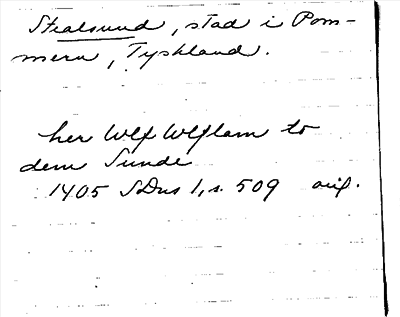 Stralsund, stad i Pom-
mern, Tyskland.
her Wlf Wlflam to
dem Sunde
1405 SDns 1, s. 509 orig.